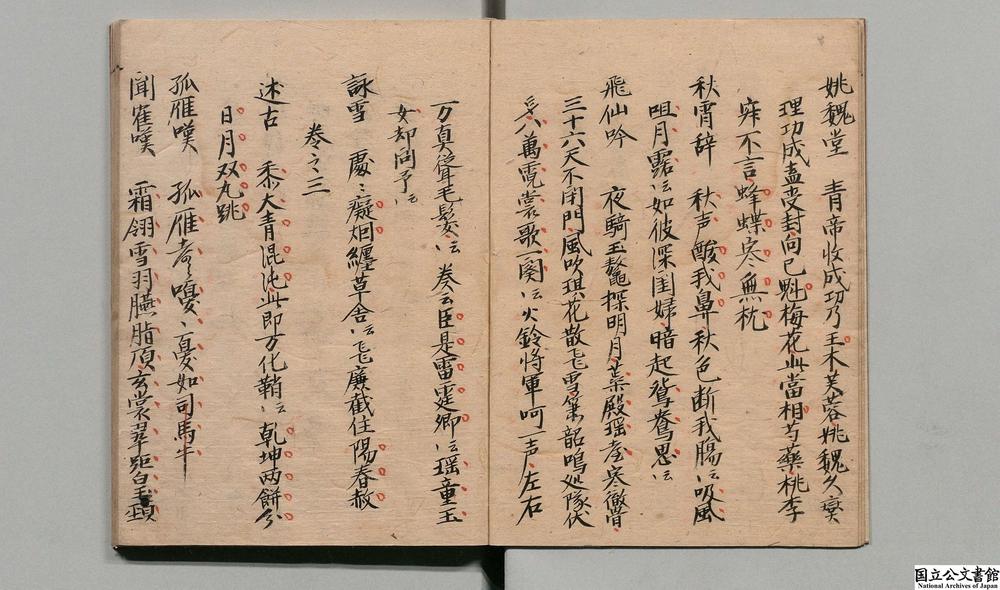 姚魏堂　青帝收成功乃王木芙蓉姚魏久奭
理功成盍受封向巳魁梅花此當相芍藥桃李
寐不言蜂蝶寒無枕
秋宵辞　秋声酸我鼻秋色断我腸〻吸風
咀月露〻如彼深閨婦暗起鴛鴦思〻
飛仙吟　夜騎玉鼇探明月蘂殿瑶臺寒徹骨
三十六天不閉門風吹琪花散飛雪簫韶鳴延隊伏
八萬霓裳歌一闋〻火鈴将軍呵一声左右
万真從耸毛髪〻奏云臣是雷霆卿〻瑶童玉
女却問予〻
詠雪　處〻癡烟纏草舎〻飛廉截住陽春赦
巻之三
述古　黍大青混沌此即万化鞘〻乾坤两餅分
日月双丸跳
孤雁嘆　孤雁嗸〻嗄〻憂如司馬牛
聞隺嘆　霜翎雪羽臙脂頂玄裳翠距白玉頸
国立公文書館
National Archives of Japan